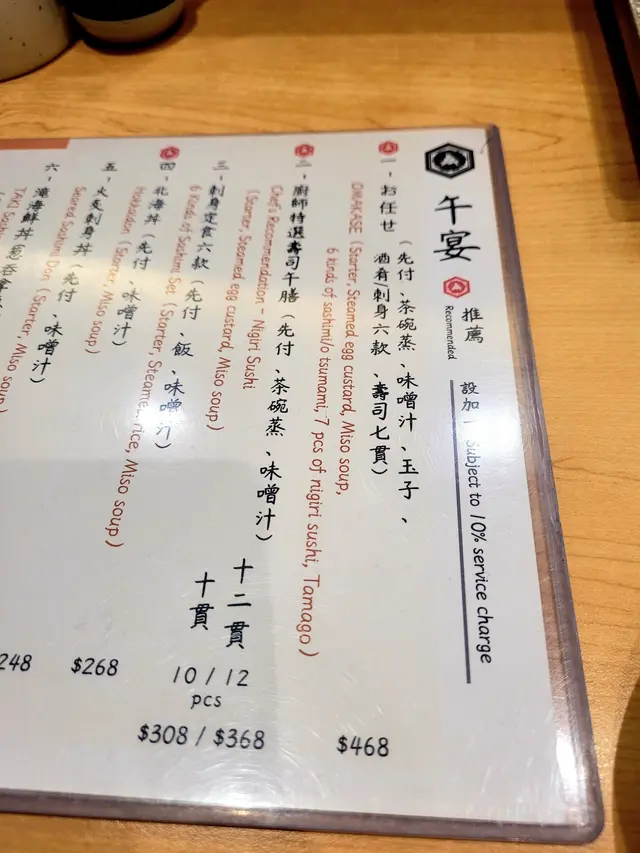 午宴
推薦
Recommended
設加一 Subject to 10% service charge
一、お任せ (先付、茶碗蒸、味噌汁、玉子、
酒肴/刺身六款、壽司七貫)
OMAKASE (Starter, Steamed egg custard, Miso soup,
6 kinds of sashimi/o tsumami, 7 pcs of nigiri sushi, Tamago)
$468
二、廚師特選壽司午膳 (先付、茶碗蒸、味噌汁)
Chef's Recommendation - Nigiri Sushi
(Starter, Steamed egg custard, Miso soup)
十二貫
十貫
10 / 12
pcs
$308 / $368
三、刺身定食六款 (先付、飯、味噌汁)
6 Kinds of Sashimi Set (Starter, Steamed rice, Miso soup)
四、北海丼 (先付、味噌汁)
Hokkaidon (Starter, Miso soup)
$268
五、火炙刺身丼 (先付、味噌汁)
Seared Sashimi Don (Starter, Miso soup)
248
六、滝海鮮丼
TAKI